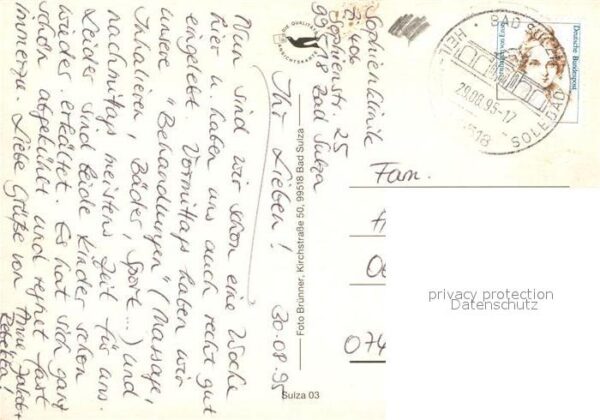 Sophienklinik
Z. 406
Sophienstr. 25
99518 Bad Sulza
30.08.95
Ihr Lieben!
Nun sind wir schon eine Woche
hier u. haben uns auch recht gut
eingelebt. Vormittags haben wir
unsere "Behandlungen" (Massage,
Inhalieren, Bäder, Sport...) und
nachmittags meistens Zeit für uns.
Leider sind beide Kinder schon
wieder erkältet. Es hat sich ganz
schön abgekühlt und regnet fast
immerzu. Liebe Grüße von Anne, Jakob +
Rebekka!
Foto Brünner, Kirchstraße 50, 99518 Bad Sulza
Sulza 03
Deutsche Bundespost
BAD SULZA
29.08.95-17
99518
SOLEBAD
HEIL
Fam.
074
privacy protection
Datenschutz